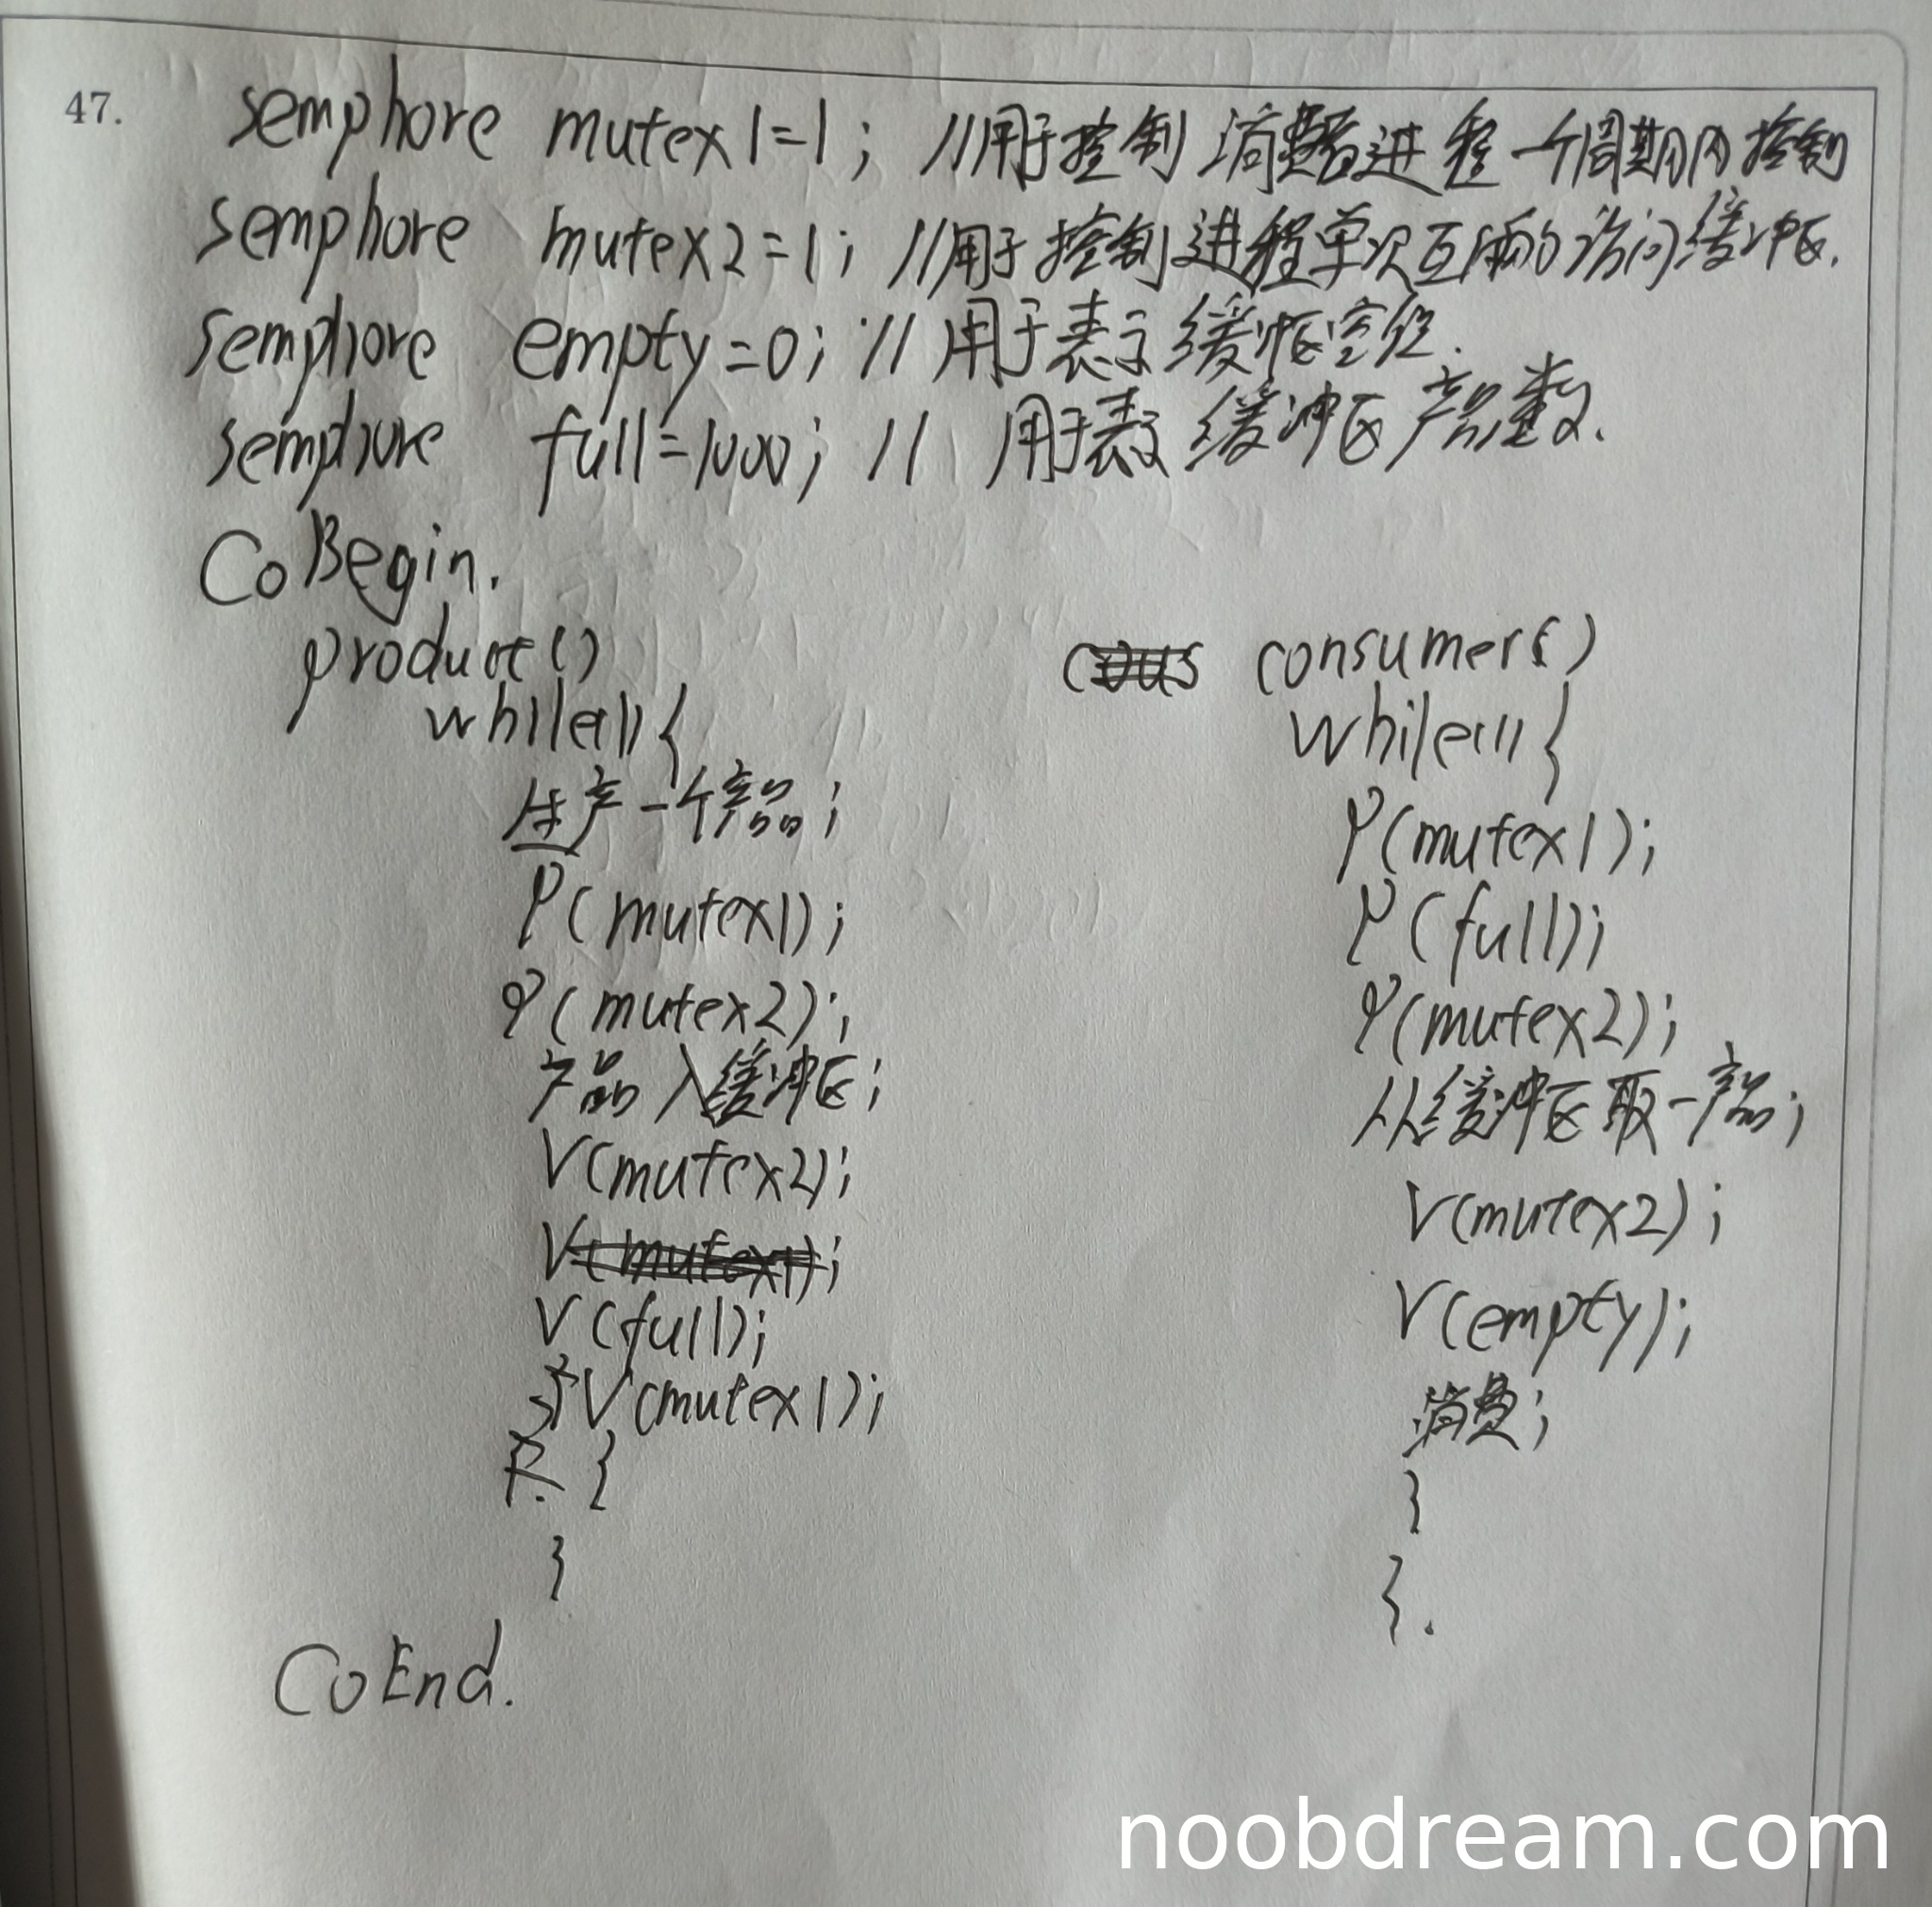 47.
semphore mutex1=1; //用于控制消费者进程一个周期内控制
semphore mutex2=1; //用于控制进程单次互斥的访问缓冲区.
semphore empty=0; // 用于表示缓冲区空位.
semphore full=1000; // 用于表示缓冲区产品数.
CoBegin.
product()
while(1){
生产一个产品;
P(mutex1);
P(mutex2);
产品入缓冲区;
V(mutex2);
V(mutex1);
V(full);
V(mutex1);
}
}
consumer()
while(1){
P(mutex1);
P(full);
P(mutex2);
从缓冲区取一产品;
V(mutex2);
V(empty);
消费;
}
}.
CoEnd.
noobdream.com